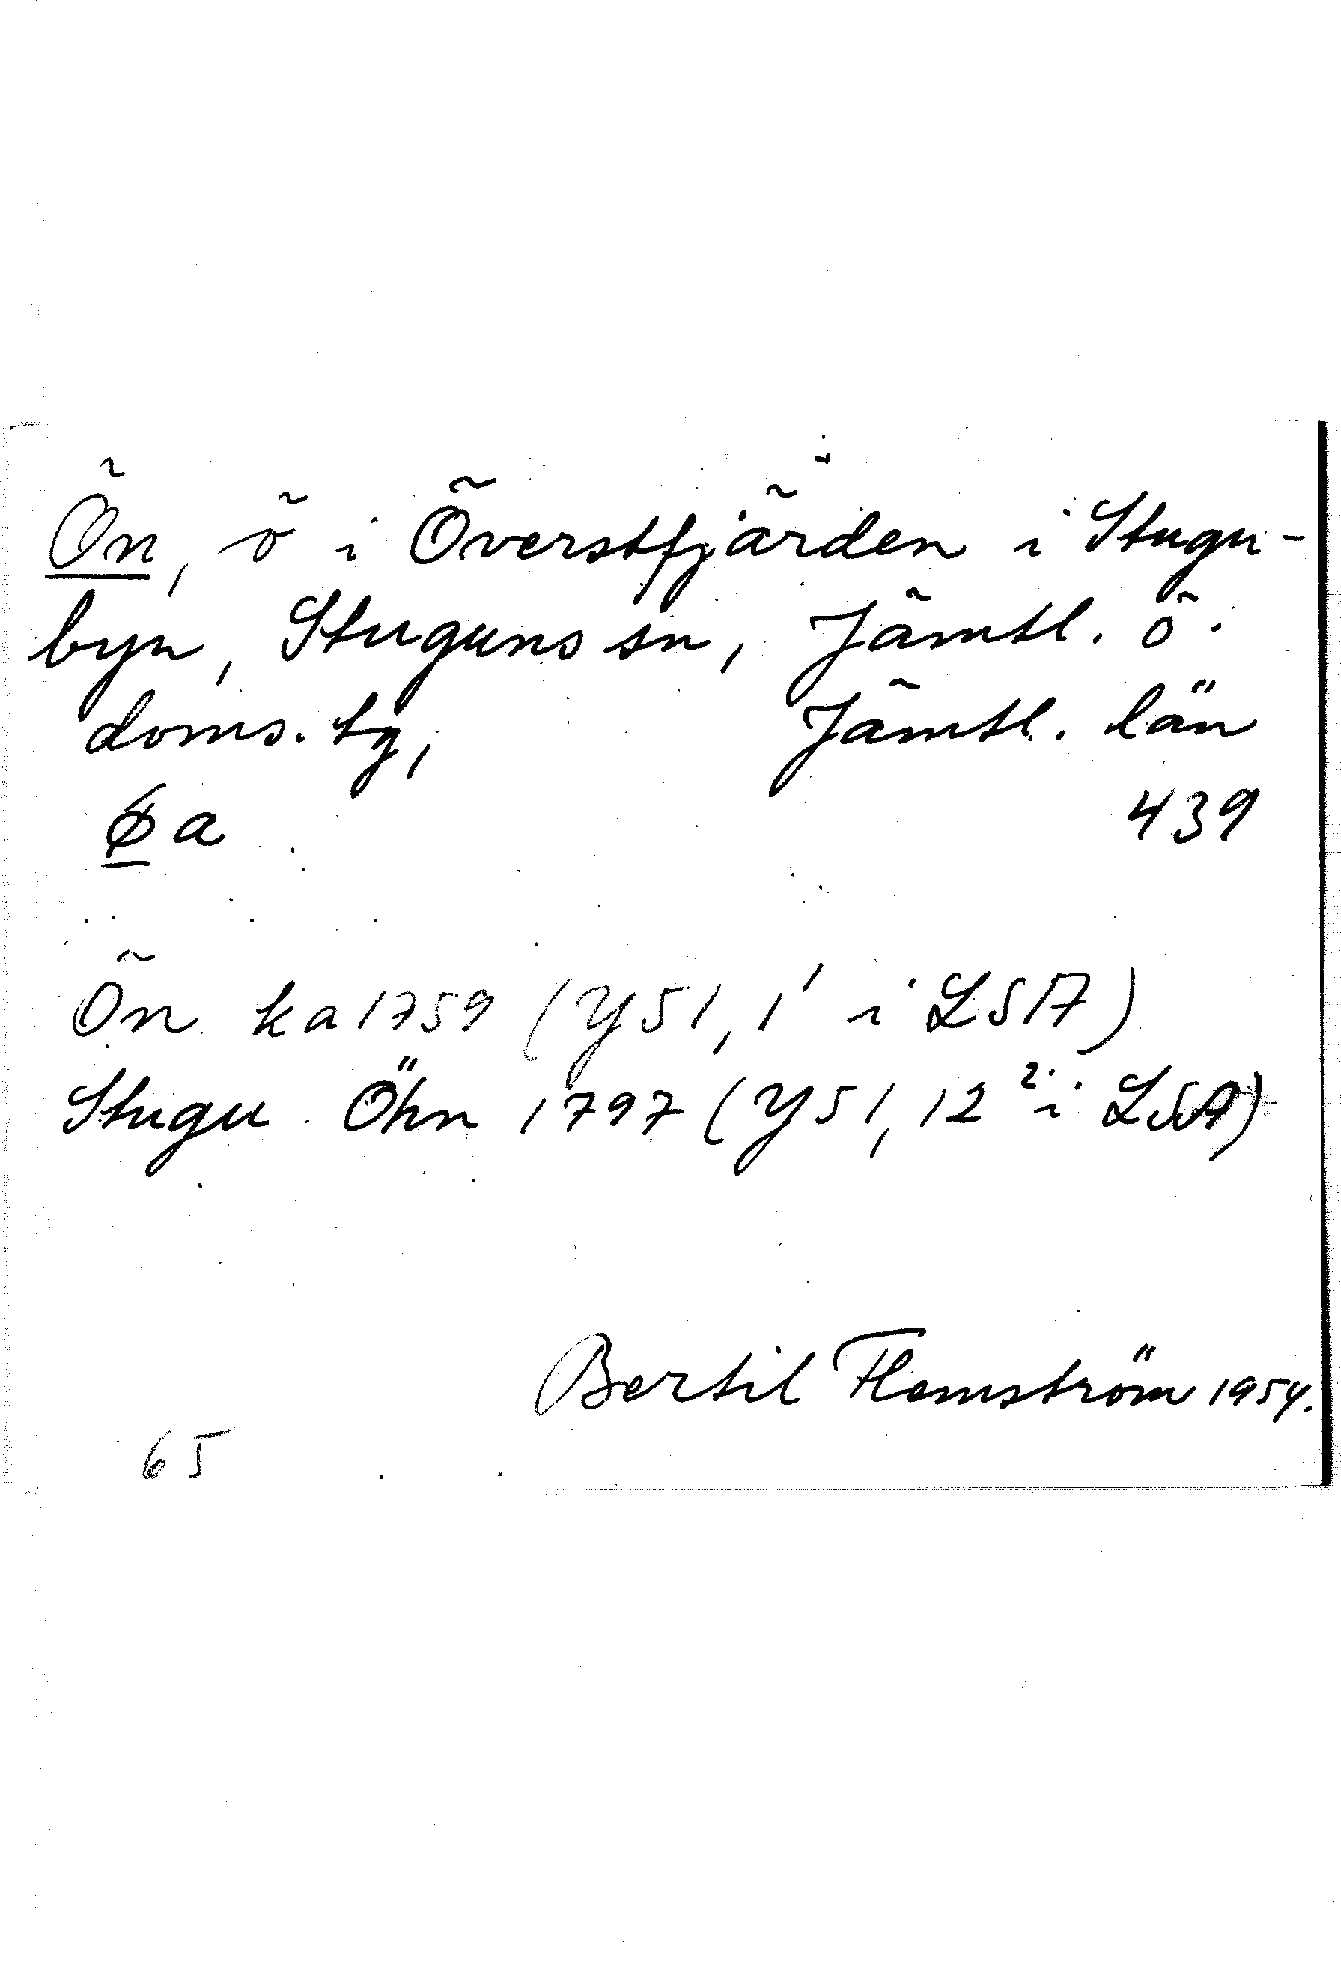 Ön, ö i Överstfjärden i Stugu-
byn, Stuguns sn, Jämtl. ö.
doms. tg, Jämtl. län
a 439
Ön ka 1759 (Y51, 1¹ i LSA)
Stugu Öhn 1797 (Y51, 12² i LSA)
Bertil Flemström 1954.
65